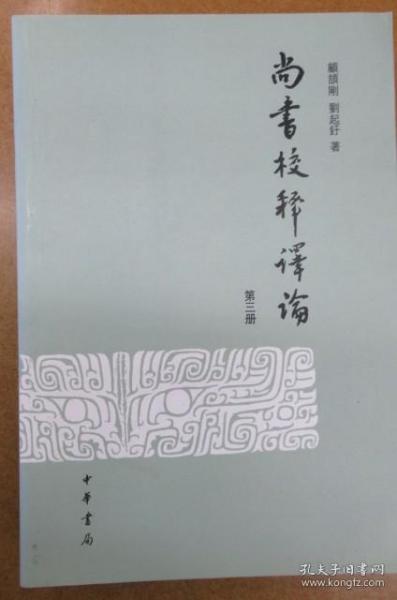 顧頡剛 劉起釪 著
尚書校釋譯論
第三册
中華書局
孔夫子旧书网
www.kongfz.com